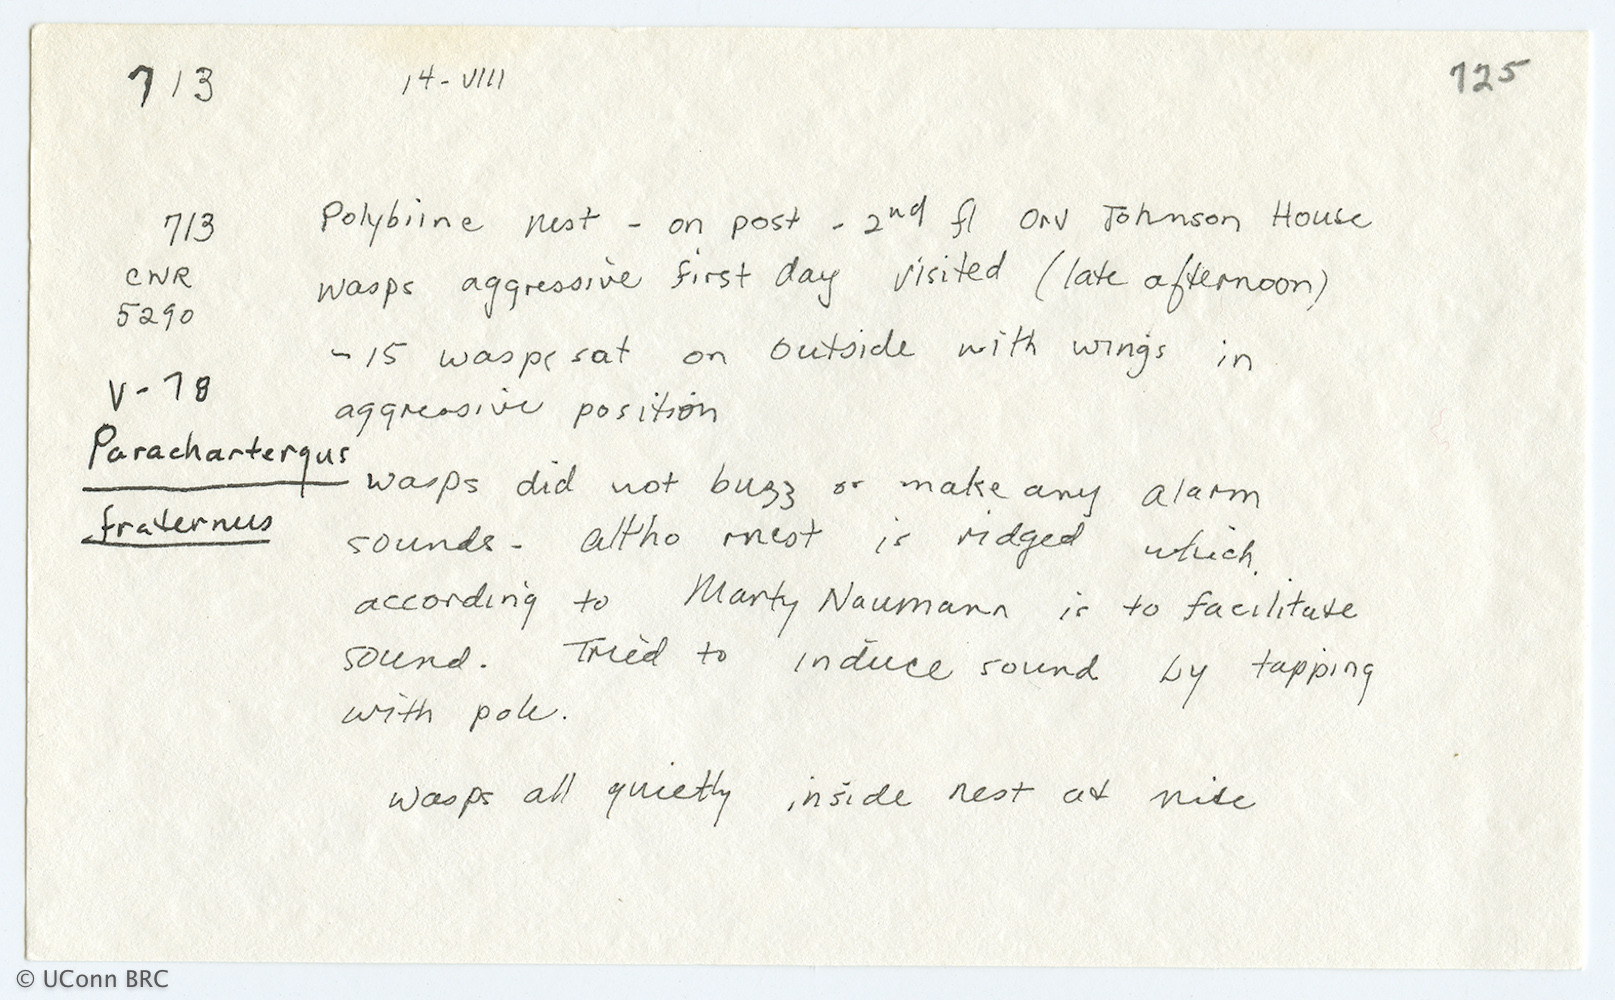 713 14-VIII 725
713 Polybiine nest - on post - 2nd fl Orv Johnson House
CWR wasps aggressive first day visited (late afternoon)
5290
~15 wasps sat on outside with wings in
V-78 aggressive position
Parachartergus
wasps did not buzz or make any alarm
fraternus sounds - altho nest is ridged which
according to Marty Naumann is to facilitate
sound. Tried to induce sound by tapping
with pole.
wasps all quietly inside nest at nite
© UConn BRC